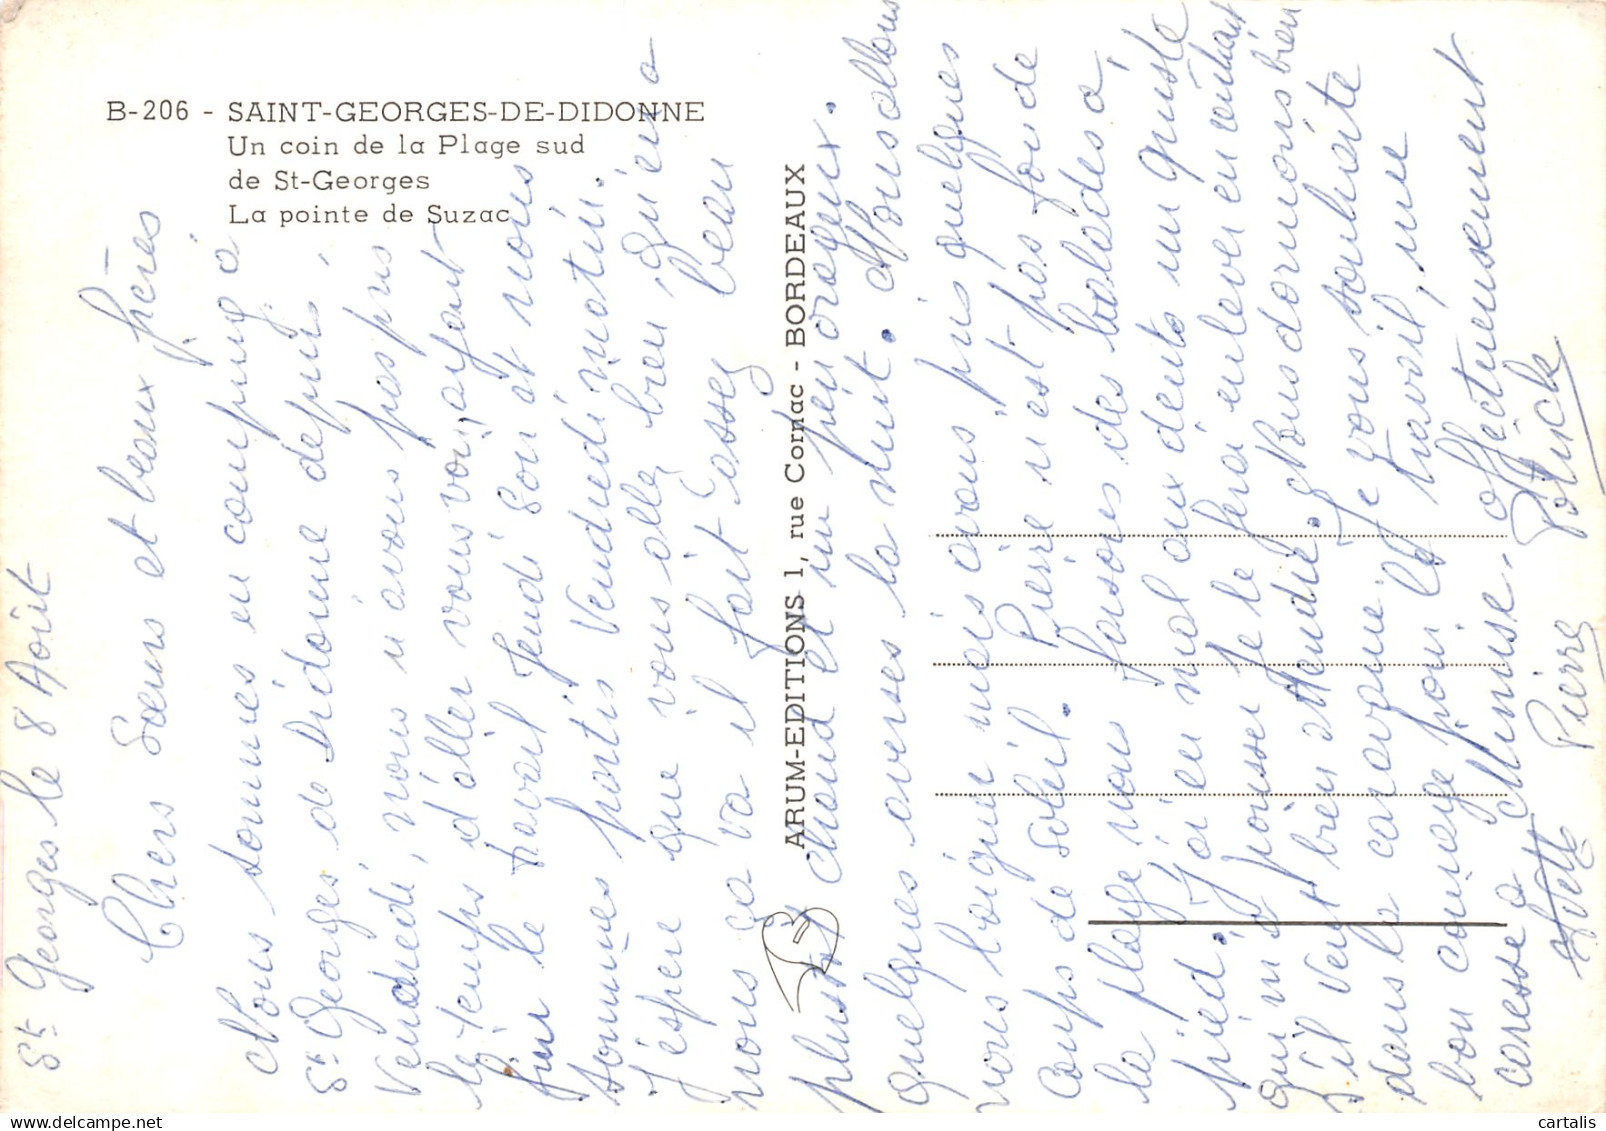 B-206 - SAINT-GEORGES-DE-DIDONNE
Un coin de la Plage sud
de St-Georges
La pointe de Suzac
ARUM-EDITIONS 1, rue Cornac - BORDEAUX
St Georges le 8 Août
Chers Sœurs et beaux frères
Nous sommes en camping à
St Georges de Didonne depuis
Vendredi, nous n'avons pas pris
le temps d'aller vous voir, ayant
fini le travail Jeudi Soir et nous
sommes partis Vendredi matin.
J'espère que vous allez bien, qu'en a
nous ça va il fait assez beau
plutôt chaud et un peu orageux.
quelques averses la nuit. Nous allons
nous baigner mais avons pris quelques
coups de soleil. Pierre n'est pas fou de
la plage, nous faisons des balades à
pied, J'ai eu mal aux dents un kyste
qui m'a poussé je le ferai enlever en rentrant
s'il veut bien attendre. Nous dormons bien
dans la caravane. Je vous souhaite
bon courage pour le travail, une
caresse a Minise. affectueusement
Yvette Pierre Patrick
cartalis